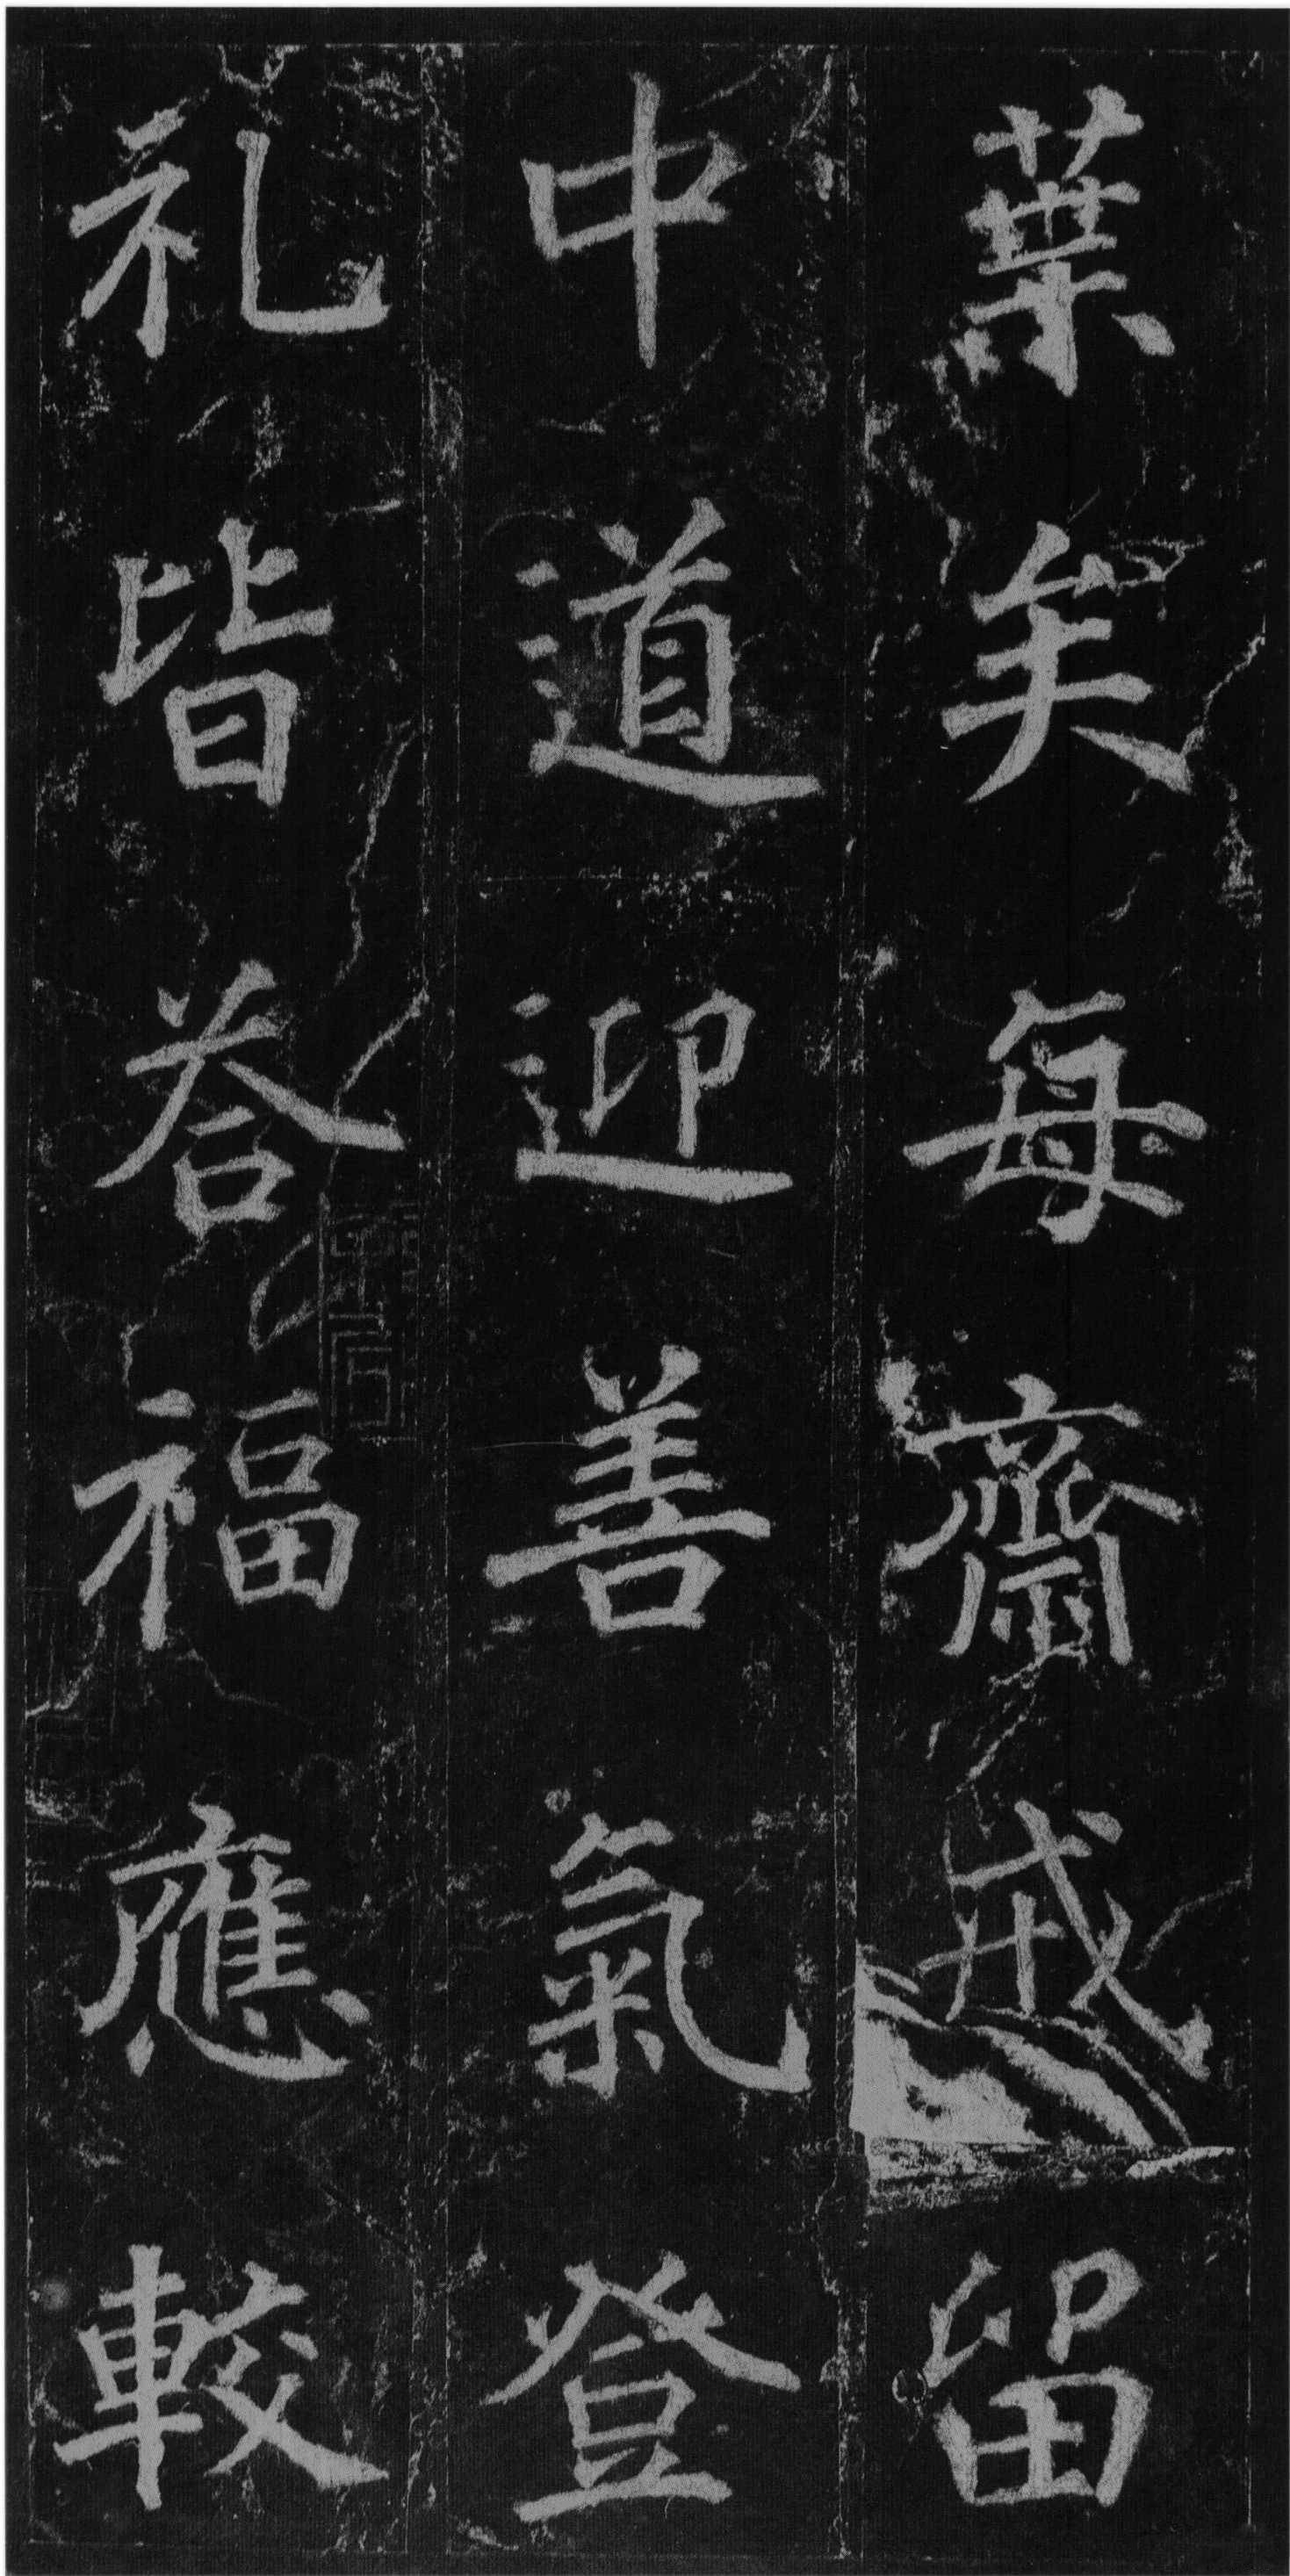 葉矣每齋戒留
中道迎善氣登
礼皆荅福應較